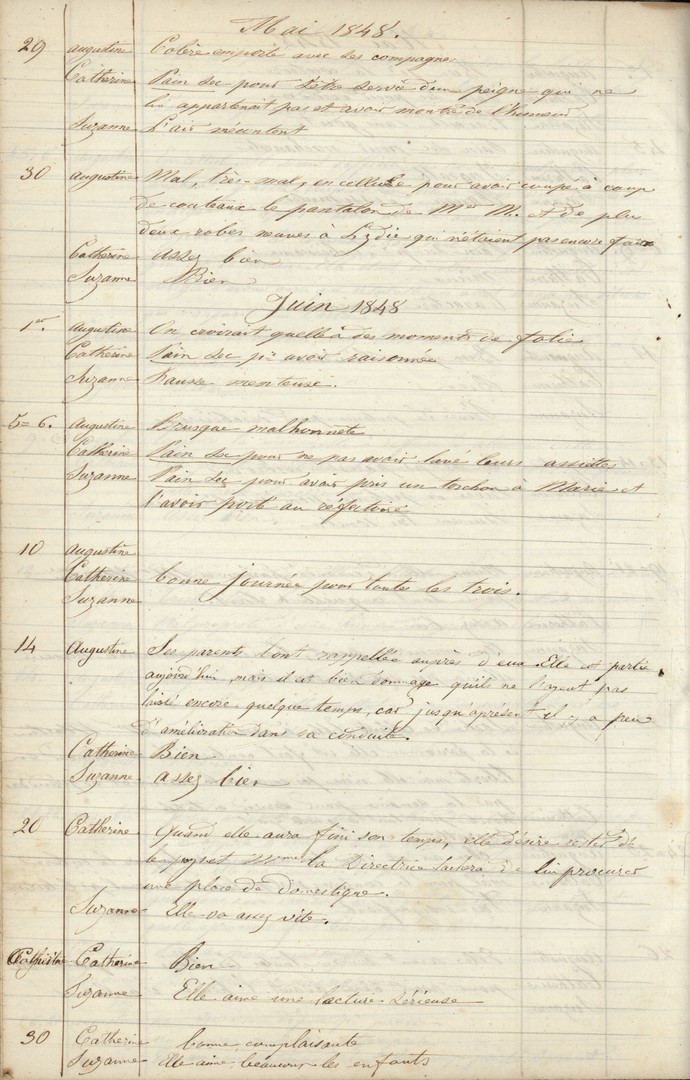 Mai 1848.
29 Augustine Colère emporté avec ses compagnes
Catherine Pain sec pour s'être servie d'un peigne qui ne
lui appartenait pas et avoir montré de l'humeur
Suzanne L'air mécontent
30 Augustine Mal, très-mal, en cellule pour avoir coupé à coup
de couteaux le pantalon de Mer M. et de plus
deux robes neuves à Lydie qui n'étaient pas encore
Catherine assez bien
Suzanne Bien
Juin 1848
1er. Augustine On croirait quelle à des moments de folie
Catherine Pain sec pr avoir raisonnée
Suzanne Fausse menteuse.
5=6. Augustine Brusque malhonnete
Catherine Pain sec pour ne pas avoir lavé leurs assiettes
Suzanne Pain sec pour avoir pris un torchon à Marie et
l'avoir porté au réfectoire
10 Augustine
Catherine bonne journée pour toutes les trois.
Suzanne
14 Augustine Ses parents l'ont rappellée auprès d'eux. Elle est partie
aujourd'hui, mais il est bien dommage qu'ils ne l'ayent pas
laissé encore quelque temps, car jusqu'aprésent il y a peu
d'amélioration dans sa conduite.
Catherine Bien
Suzanne assez bien
20 Catherine Quand elle aura fini son temps, elle désire rester
Mme la Directrice tachera de lui procurer
une place de domestique.
Suzanne Elle va assez vite.
Catherine Bien
Suzanne Elle aime une lecture sérieuse
30 Catherine bonne complaisante
Suzanne Elle aime beaucoup les enfants